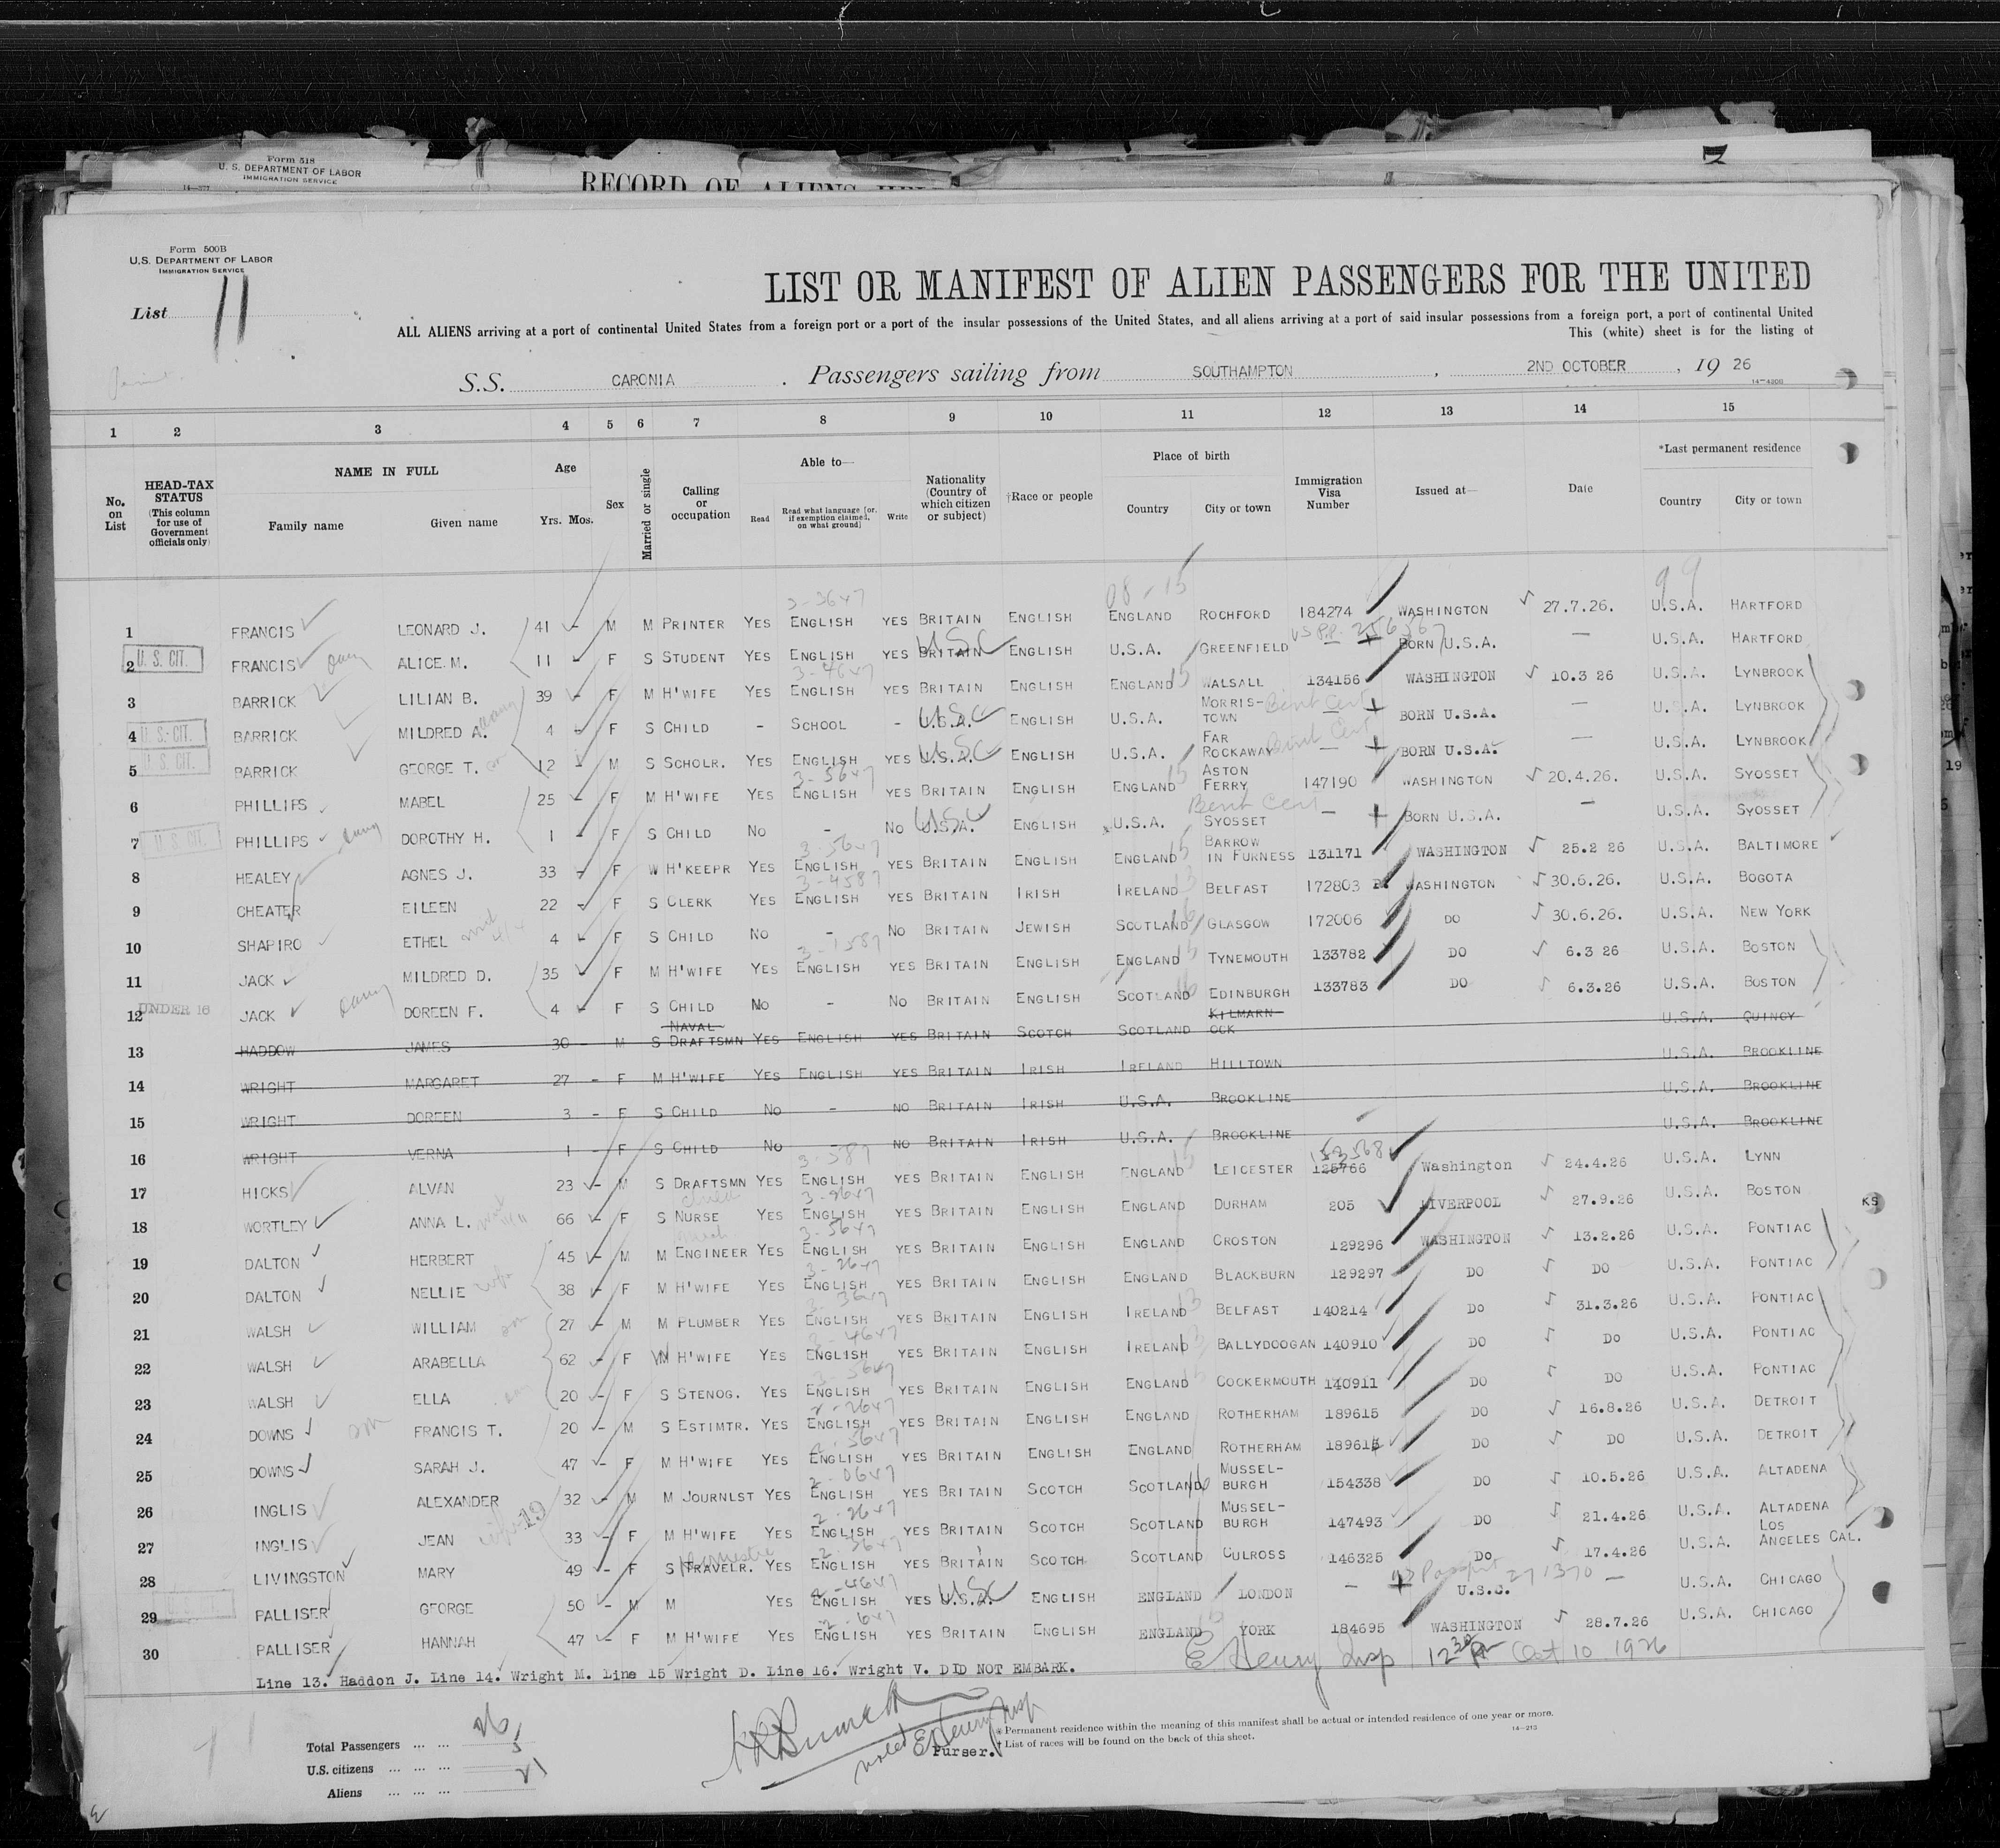 Form 518
U. S. DEPARTMENT OF LABOR
IMMIGRATION SERVICE
RECORD OF ALIENS HELD
Form 500B
U.S. DEPARTMENT OF LABOR
IMMIGRATION SERVICE
List 11
LIST OR MANIFEST OF ALIEN PASSENGERS FOR THE UNITED
ALL ALIENS arriving at a port of continental United States from a foreign port or a port of the insular possessions of the United States, and all aliens arriving at a port of said insular possessions from a foreign port, a port of continental United
This (white) sheet is for the listing of
S.S. CARONIA . Passengers sailing from SOUTHAMPTON , 2ND OCTOBER , 19 26
1 2 3 4 5 6 7 8 9 10 11 12 13 14 15
No. on List
HEAD-TAX STATUS (This column for use of Government officials only)
NAME IN FULL
Family name Given name
Age
Yrs. Mos.
Sex
Married or single
Calling or occupation
Able to—
Read Read what language [or, if exemption claimed, on what ground] Write
Nationality (Country of which citizen or subject)
†Race or people
Place of birth
Country City or town
Immigration Visa Number
Issued at—
Date
*Last permanent residence
Country City or town
1 FRANCIS LEONARD J. 41 - M M PRINTER YES ENGLISH YES BRITAIN ENGLISH ENGLAND ROCHFORD 184274 WASHINGTON 27.7.26. U.S.A. HARTFORD
2 U. S. CIT. FRANCIS ALICE M. 11 - F S STUDENT YES ENGLISH YES BRITAIN USC ENGLISH U.S.A. GREENFIELD — BORN U.S.A. — U.S.A. HARTFORD
3 BARRICK LILIAN B. 39 - F M H'WIFE YES ENGLISH YES BRITAIN ENGLISH ENGLAND WALSALL 134156 WASHINGTON 10.3 26 U.S.A. LYNBROOK
4 U. S. CIT. BARRICK MILDRED A. 4 - F S CHILD - SCHOOL - U.S.A. USC ENGLISH U.S.A. MORRIS-TOWN — BORN U.S.A. — U.S.A. LYNBROOK
5 U. S. CIT. BARRICK GEORGE T. 12 - M S SCHOLR. YES ENGLISH YES U.S.A. USC ENGLISH U.S.A. FAR ROCKAWAY — BORN U.S.A. — U.S.A. LYNBROOK
6 PHILLIPS MABEL 25 - F M H'WIFE YES ENGLISH YES BRITAIN ENGLISH ENGLAND ASTON FERRY 147190 WASHINGTON 20.4.26. U.S.A. SYOSSET
7 U. S. CIT. PHILLIPS DOROTHY H. 1 - F S CHILD NO - NO U.S.A. USC ENGLISH U.S.A. SYOSSET — BORN U.S.A. — U.S.A. SYOSSET
8 HEALEY AGNES J. 33 - F W H'KEEPR YES ENGLISH YES BRITAIN ENGLISH ENGLAND BARROW IN FURNESS 131171 WASHINGTON 25.2 26 U.S.A. BALTIMORE
9 CHEATER EILEEN 22 - F S CLERK YES ENGLISH YES BRITAIN IRISH IRELAND BELFAST 172803 WASHINGTON 30.6.26. U.S.A. BOGOTA
10 SHAPIRO ETHEL 4 - F S CHILD NO - NO BRITAIN JEWISH SCOTLAND GLASGOW 172006 DO 30.6.26. U.S.A. NEW YORK
11 JACK MILDRED D. 35 - F M H'WIFE YES ENGLISH YES BRITAIN ENGLISH ENGLAND TYNEMOUTH 133782 DO 6.3 26 U.S.A. BOSTON
12 UNDER 16 JACK DOREEN F. 4 - F S CHILD NO - NO BRITAIN ENGLISH SCOTLAND EDINBURGH 133783 DO 6.3.26 U.S.A. BOSTON
13 HADDOW JAMES 30 - M S NAVAL DRAFTSMN YES ENGLISH YES BRITAIN SCOTCH SCOTLAND KILMARNOCK U.S.A. QUINCY
14 WRIGHT MARGARET 27 - F M H'WIFE YES ENGLISH YES BRITAIN IRISH IRELAND HILLTOWN U.S.A. BROOKLINE
15 WRIGHT DOREEN 3 - F S CHILD NO - NO BRITAIN IRISH U.S.A. BROOKLINE U.S.A. BROOKLINE
16 WRIGHT VERNA 1 - F S CHILD NO - NO BRITAIN IRISH U.S.A. BROOKLINE U.S.A. BROOKLINE
17 HICKS ALVAN 23 - M S DRAFTSMN YES ENGLISH YES BRITAIN ENGLISH ENGLAND LEICESTER 125766 Washington 24.4.26 U.S.A. LYNN
18 WORTLEY ANNA L. 66 - F S NURSE YES ENGLISH YES BRITAIN ENGLISH ENGLAND DURHAM 205 LIVERPOOL 27.9.26 U.S.A. BOSTON
19 DALTON HERBERT 45 - M M ENGINEER YES ENGLISH YES BRITAIN ENGLISH ENGLAND CROSTON 129296 WASHINGTON 13.2.26 U.S.A. PONTIAC
20 DALTON NELLIE 38 - F M H'WIFE YES ENGLISH YES BRITAIN ENGLISH ENGLAND BLACKBURN 129297 DO DO U.S.A. PONTIAC
21 WALSH WILLIAM 27 - M M PLUMBER YES ENGLISH YES BRITAIN ENGLISH IRELAND BELFAST 140214 DO 31.3.26 U.S.A. PONTIAC
22 WALSH ARABELLA 62 - F M H'WIFE YES ENGLISH YES BRITAIN ENGLISH IRELAND BALLYDOOGAN 140910 DO DO U.S.A. PONTIAC
23 WALSH ELLA 20 - F S STENOG. YES ENGLISH YES BRITAIN ENGLISH ENGLAND COCKERMOUTH 140911 DO DO U.S.A. PONTIAC
24 DOWNS FRANCIS T. 20 - M S ESTIMTR. YES ENGLISH YES BRITAIN ENGLISH ENGLAND ROTHERHAM 189615 DO 16.8.26 U.S.A. DETROIT
25 DOWNS SARAH J. 47 - F M H'WIFE YES ENGLISH YES BRITAIN ENGLISH ENGLAND ROTHERHAM DO DO U.S.A. DETROIT
26 INGLIS ALEXANDER 32 - M M JOURNLST YES ENGLISH YES BRITAIN SCOTCH SCOTLAND MUSSEL-BURGH 154338 DO 10.5.26 U.S.A. ALTADENA
27 INGLIS JEAN 33 - F M H'WIFE YES ENGLISH YES BRITAIN SCOTCH SCOTLAND MUSSEL-BURGH 147493 DO 21.4.26 U.S.A. ALTADENA
28 LIVINGSTON MARY 49 - F S TRAVELR. Domestic YES ENGLISH YES BRITAIN SCOTCH SCOTLAND CULROSS 146325 DO 17.4.26 U.S.A. LOS ANGELES CAL.
29 PALLISER GEORGE 50 - M M YES ENGLISH YES U.S.A. USC ENGLISH ENGLAND LONDON — U.S.C. — U.S.A. CHICAGO
30 PALLISER HANNAH 47 - F M H'WIFE YES ENGLISH YES BRITAIN ENGLISH ENGLAND YORK 184695 WASHINGTON 28.7.26 U.S.A. CHICAGO
Line 13. Haddon J. Line 14. Wright M. Line 15 Wright D. Line 16. Wright V. DID NOT EMBARK.
E Henry Insp 12 30 P Oct 10 1926
Total Passengers ... ... 26
U.S. citizens ... ... ... 5
Aliens ... ... ... 21
Purser.
* Permanent residence within the meaning of this manifest shall be actual or intended residence of one year or more.
† List of races will be found on the back of this sheet.
14—213